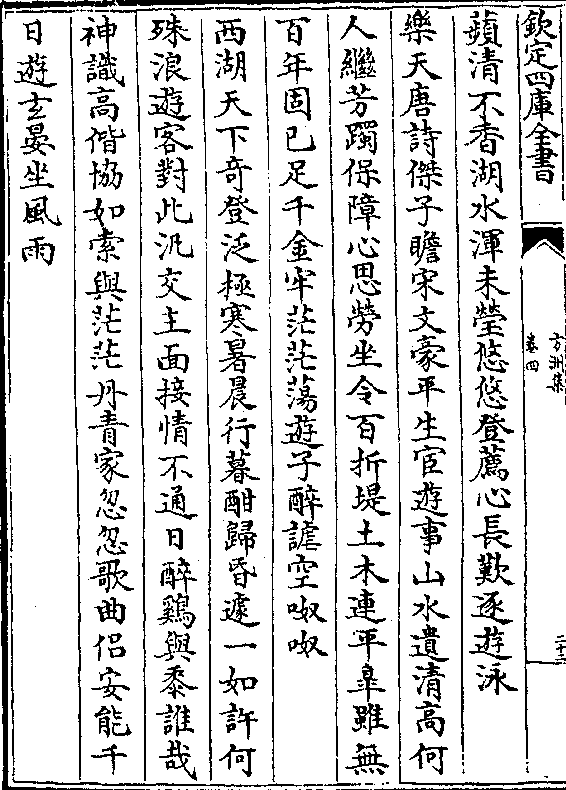 欽定四庫全書
方洲集
卷四
二十三
蘋清不香湖水渾未瑩悠悠登薦心長歎逐遊泳
樂天唐詩傑子瞻宋文豪平生宦遊事山水遺清高何
人繼芳躅保障心思勞坐令百折堤土木連平臯雖無
百年固已足千金牢茫茫蕩遊子醉謔空呶呶
西湖天下奇登泛極寒暑晨行暮酣歸昏遽一如許何
殊浪遊客對此汎交主面接情不通日醉鷄與黍誰哉
神識高偕協如索與茫茫丹青家忽忽歌曲侣安能千
日遊玄晏坐風雨